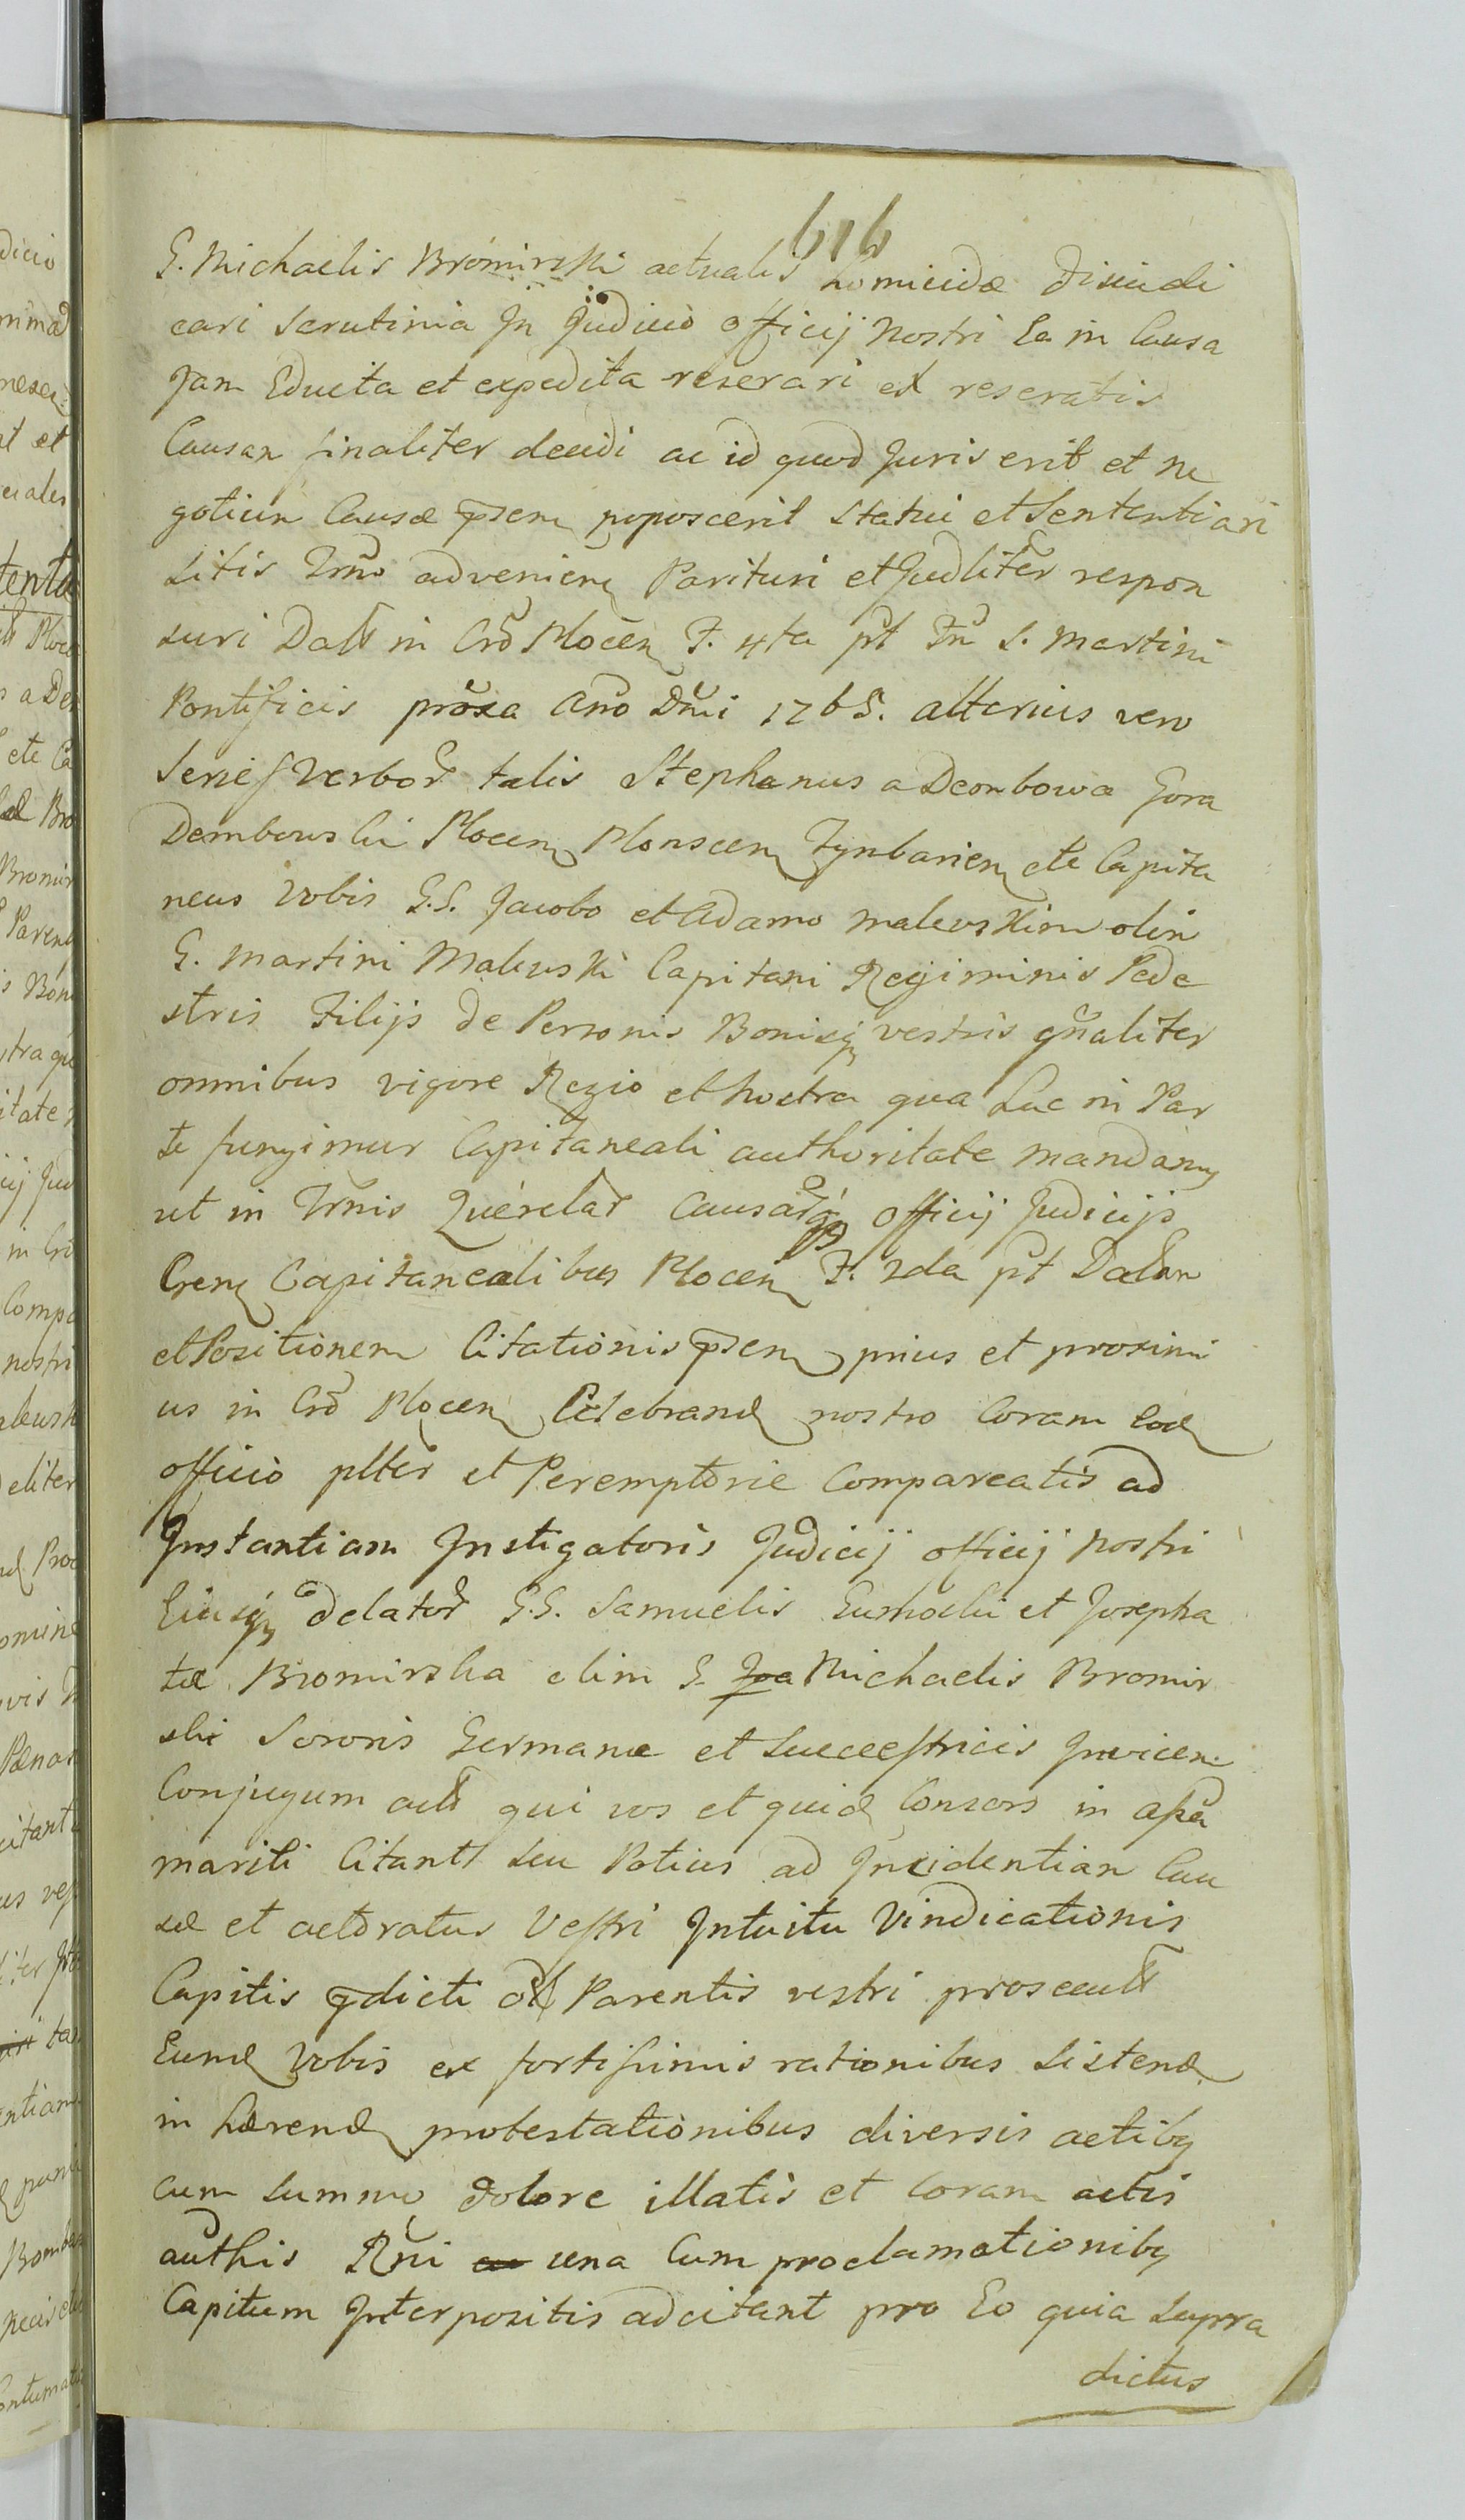 616
G. Michaelis Bromirski actualis homicidæ disiudi
cari scrutinia In Judicio officij nostri Ea in Causa
Jam Educta et expedita reserari et reseratis
Causam finaliter decidi ac id quod Juris erit et ne
gotium Causæ p̃sens poposcerit statui et Sententiari
sitis Trño advenien Parituri et Judliter respon
suri Datt in Crõ Plocen F. 4ta p̃t Fm S. Martini
Pontificis proxa Año Dñi 1765. alterius vero
Series Verbor talis Stephanus a Dembowa Gora
Dembowski Plocen Plonscen Tynbarien etc Capita
neus Vobis G.G. Jacobo et Adamo Malewskim olim
G. Martini Malewski Capitani Regiminis Pede
stris Filijs de Personis Bonisq vestris gñaliter
omnibus vigore Regio et nostra qua hac in Par
te fungimur Capitaneali authoritate mandamus
ut in Trñis Querelar Causarq officij Judicijs
Cren Capitanealibus Plocen F. 2da p̃t Datam
et Positionem Citationis p̃sen prius et proximi
us in Crõ Plocen Celebrand nostro Coram Eod
officio p̃lter et Peremptorie Compareatis ad
Instantiam Instigatoris Judicij officij nostri
Eiusq delator G.G. Samuelis et Josepha
tæ Bromirska olim G. Joa Michaelis Bromir
ski Sororis Germanæ et Successtricis Invicem
Conjugum act qui vos et quid Consors in assa
mariti Citant seu Potius ad Incidentiam Cau
sæ et actoratus Vestri Intuitu Vindicationis
Capitis p̃dicti ol Parentis vestri prosecut
Eund Vobis ex fortissimis rationibus sistend
in hærend protestationibus diversis actibq
cum summo dolore illatis et Coram actis
authis Rñi ac una Cum proclamationibq
Capitum Interpositis adcitant pro Eo quia supra
dictus